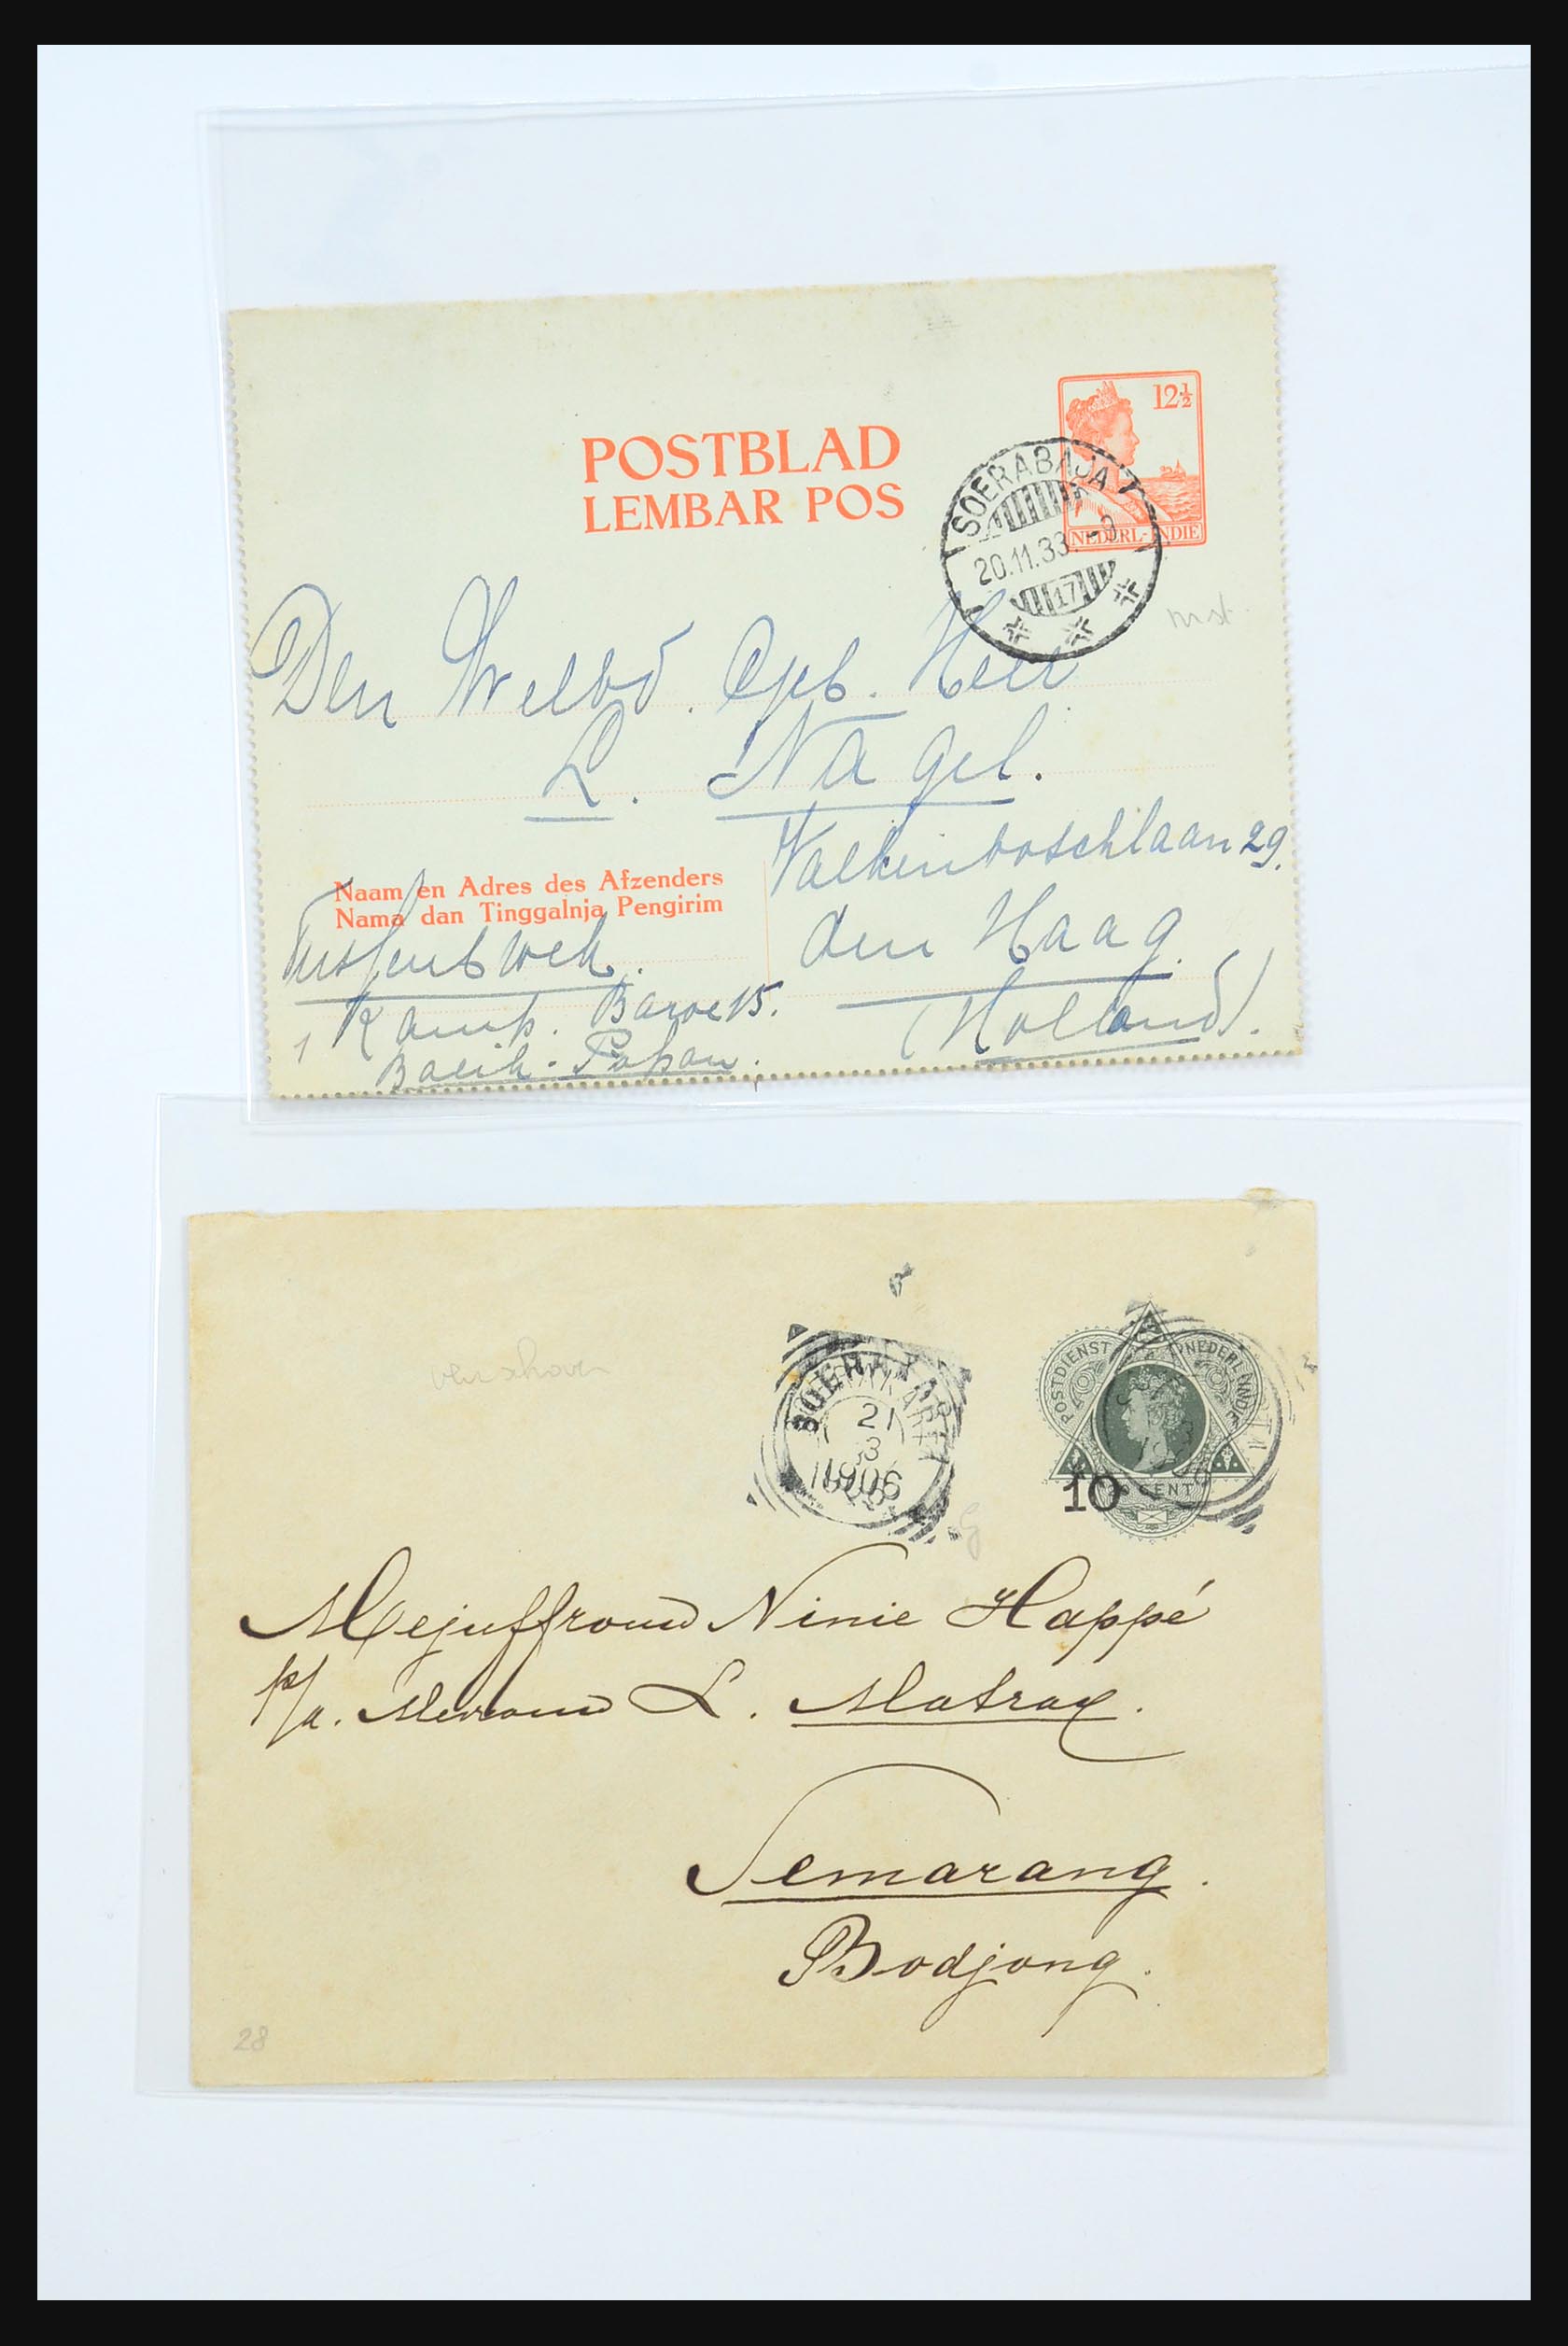 POSTBLAD
LEMBAR POS
12½
NEDERL-INDIE
SOERABAJA
20.11.33.-9
17
Den Weled. Geb. Heer
L. Nagel.
Valkenboschlaan 29.
den Haag.
(Holland).
Naam en Adres des Afzenders
Nama dan Tinggalnja Pengirim
Kamp. Baroe 15.
Balik-Papan.
POSTDIENST
NEDERL. INDIE
10
CENT
21
3
1906
Mejuffrouw Ninie Happé
p/a. Mevrouw L. Matray.
Semarang.
Bodjong.
28